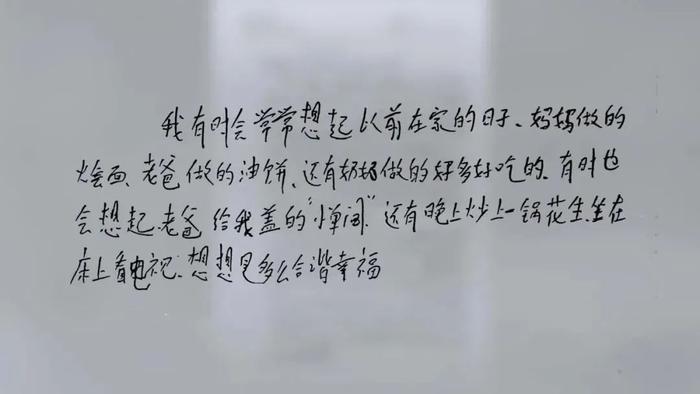 我有时会常常想起以前在家的日子、妈妈做的
烩面、老爸做的油饼、还有奶奶做的好多好吃的、有时也
会想起、老爸给我盖的"单间"还有晚上炒上一锅花生、坐在
床上看电视、想想是多么合谐幸福